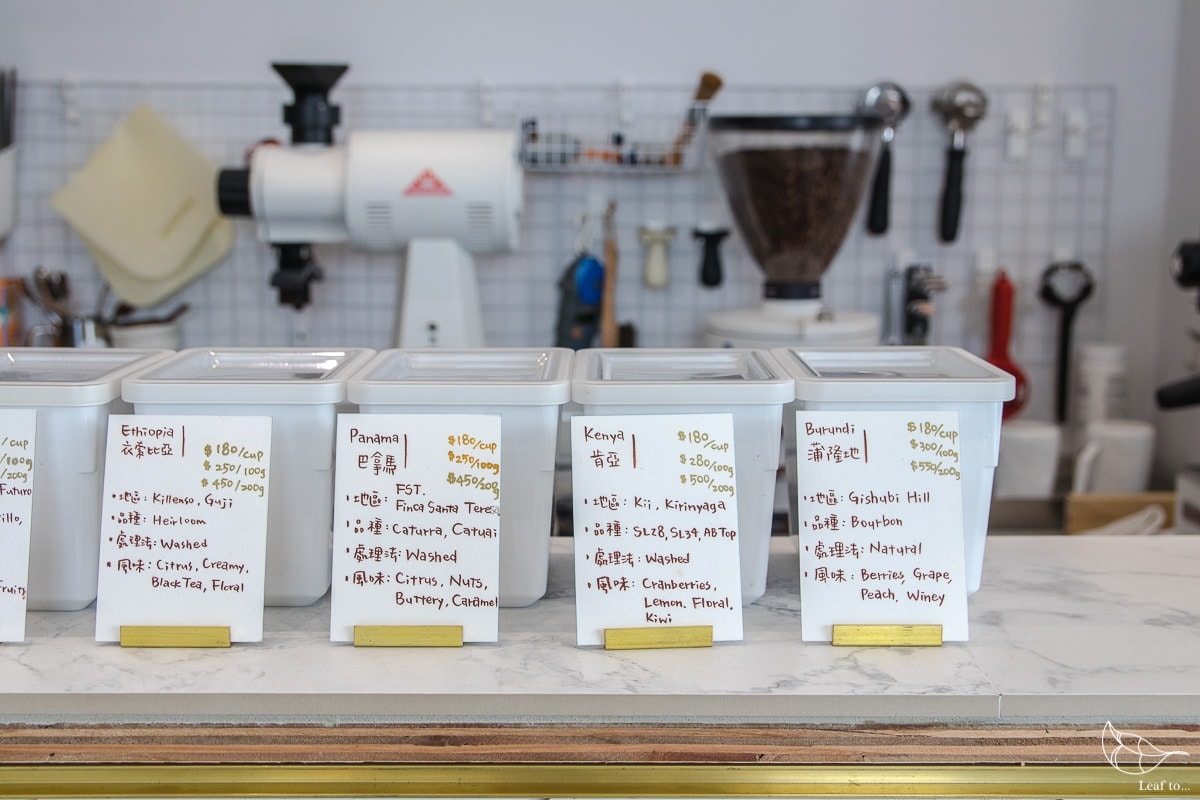 /cup
/100g
/200g
Futuro
Ethiopia
衣索比亞
$180/cup
$250/100g
$450/200g
・地區: Killenso, Guji
・品種: Heirloom
・處理法: Washed
・風味: Citrus, Creamy,
Black Tea, Floral
Panama
巴拿馬
$180/cup
$250/100g
$450/200g
・地區: FST.
Finca Santa Teres
・品種: Caturra, Catuai
・處理法: Washed
・風味: Citrus, Nuts,
Buttery, Caramel
Kenya
肯亞
$180/cup
$280/100g
$500/200g
・地區: Kii, Kirinyaga
・品種: SL28, SL34, AB Top
・處理法: Washed
・風味: Cranberries,
Lemon, Floral,
Kiwi
Burundi
蒲隆地
$180/cup
$300/100g
$550/200g
・地區: Gishubi Hill
・品種: Bourbon
・處理法: Natural
・風味: Berries, Grape,
Peach, Winey
Leaf to...